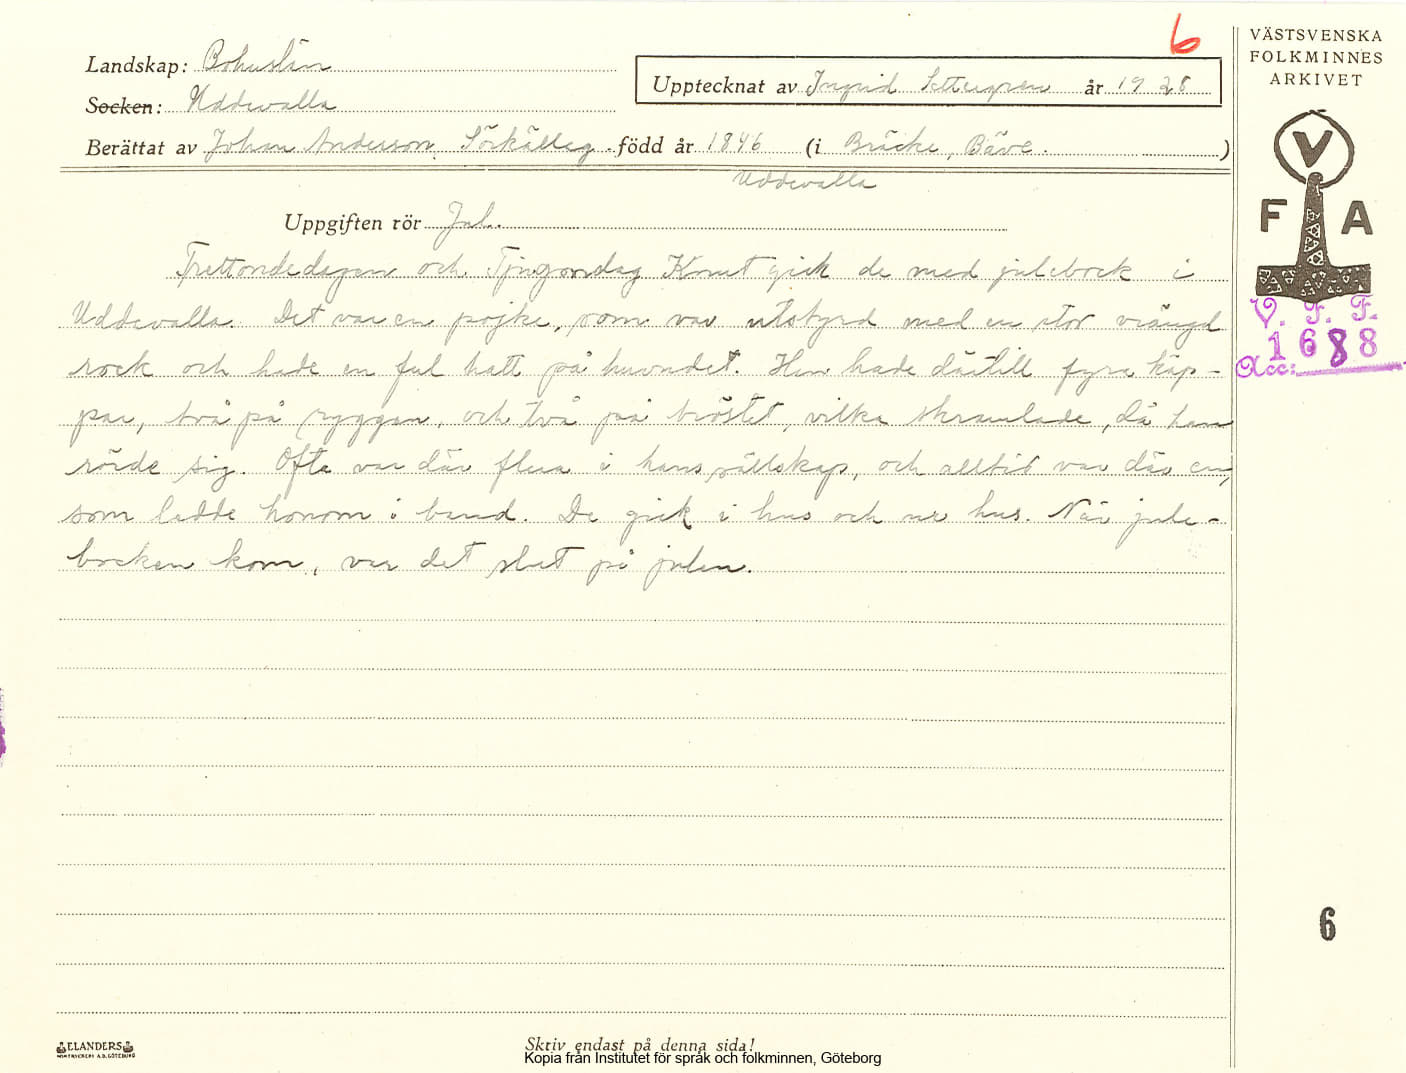 6
VÄSTSVENSKA
FOLKMINNES
ARKIVET
Landskap: Bohuslän
Upptecknat av Ingrid Settergren år 1928
Socken: Uddevalla
Berättat av Johan Anderson, Sörkälleg. född år 1846 (i Bräcke, Bäve. )
Uddevalla
V
F A
Uppgiften rör Jul.
Trettondedagen och Tjugondag Knut gick de med julebock i
Uddevalla. Det var en pojke, som var utstyrd med en stor vrängd
rock och hade en ful hatt på huvudet. Han hade därtill fyra käp-
par, två på ryggen, och två på bröstet, vilka skramlade, då han
rörde sig. Ofta var där flera i hans sällskap, och alltid var där en,
som ledde honom i band. De gick i hus och ur hus. När jule-
bocken kom, var det slut på julen.
V. F. F.
Acc: 1688
6
ELANDERS
BOKTRYCKERI A.B. GÖTEBORG
Skriv endast på denna sida!
Kopia från Institutet för språk och folkminnen, Göteborg